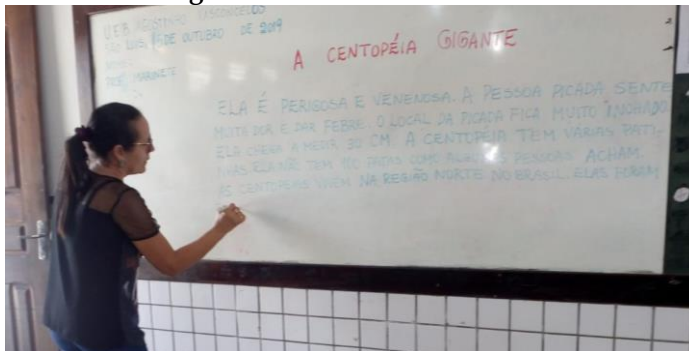 U.E.B. AGOSTINHO VASCONCELOS
SÃO LUÍS, DE OUTUBRO DE 2019
PROFª MARINETE
A CENTOPÉIA GIGANTE
ELA É PERIGOSA E VENENOSA. A PESSOA PICADA SENTE
MUITA DOR E DAR FEBRE. O LOCAL DA PICADA FICA MUITO INCHADO
ELA CHEGA A MEDIR 30 CM. A CENTOPÉIA TEM VÁRIAS PATI-
NHAS, ELA NÃO TEM 100 PATAS COMO ALGUMAS PESSOAS ACHAM.
AS CENTOPEIAS VIVEM NA REGIÃO NORTE NO BRASIL. ELAS